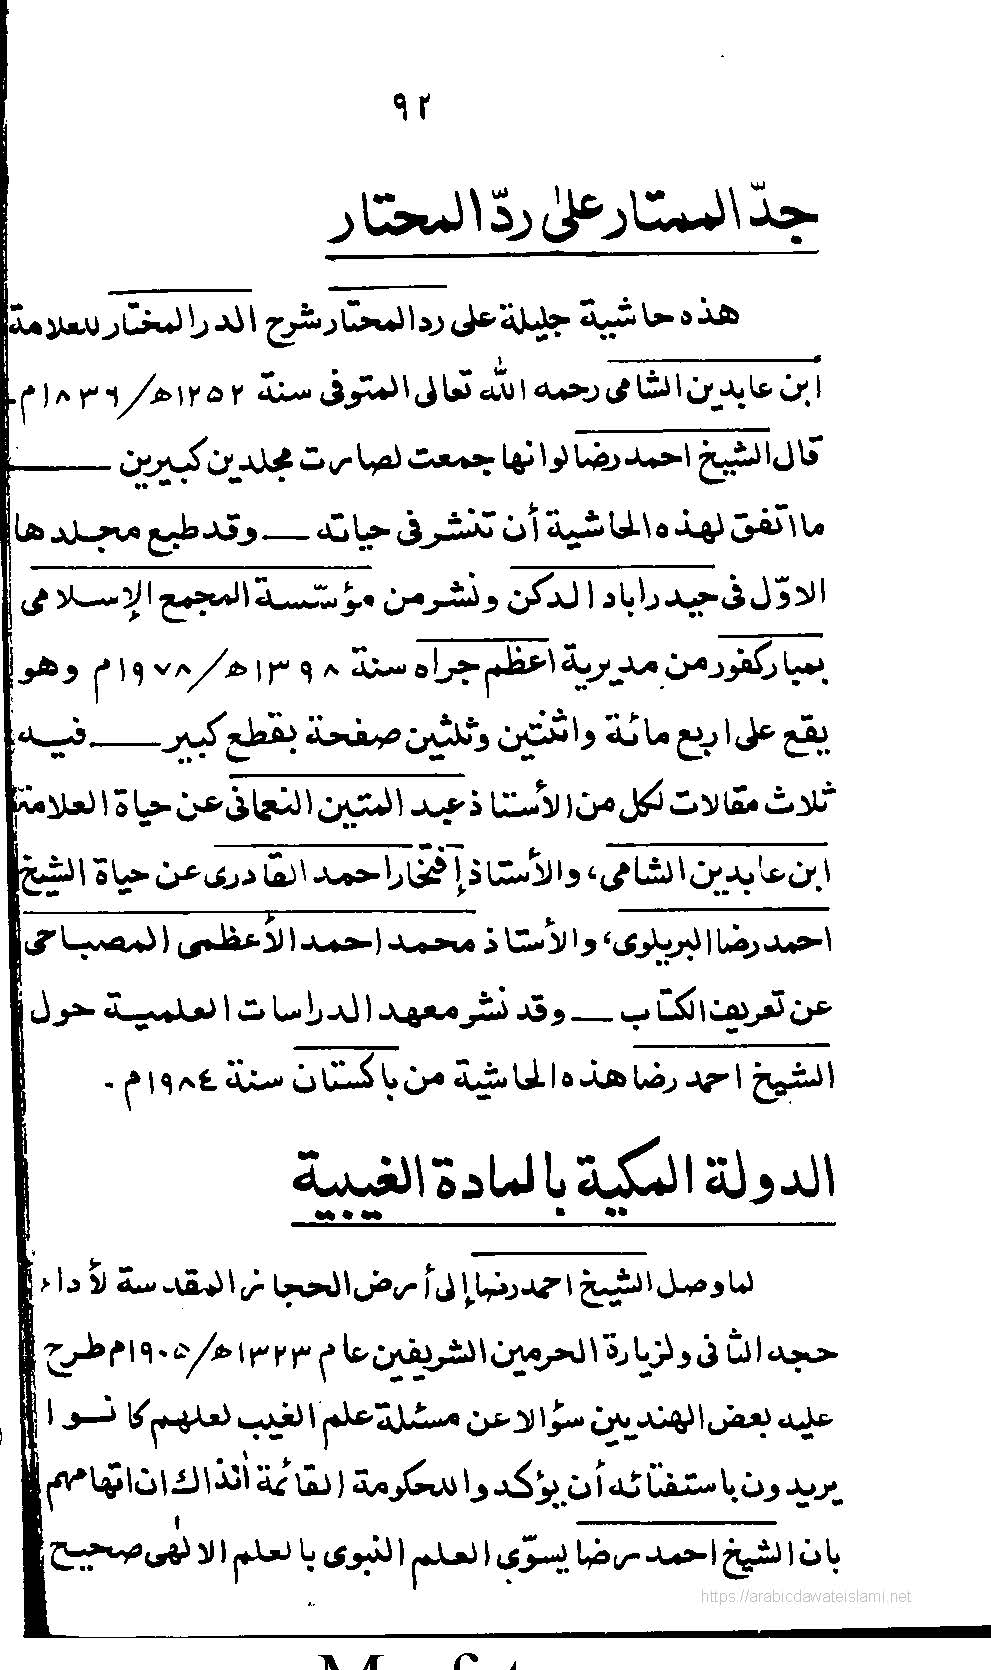 ٩٢
جدّ الممتار علىٰ ردّ المحتار
هذه حاشية جليلة على رد المحتار شرح الدر المختار للعلامة
ابن عابدين الشامى رحمه الله تعالى المتوفى سنة ١٢٥٢ھ/١٨٣٦م -
قال الشيخ احمد رضا لو انها جمعت لصارت مجلدين كبيرين ــــــ
ما اتفق لهذه الحاشية أن تنشر فى حياته ـــ وقد طبع مجلدها
الاوّل فى حيدر اباد الدكن ونشر من مؤسّسة المجمع الإسلامى
بمباركفور من مديرية اعظم جراه سنة ١٣٩٨ھ/١٩٧٨م وهو
يقع على اربع مائة واثنتين وثلثين صفحة بقطع كبير ـــــ فيه
ثلاث مقالات لكل من الأستاذ عبد المتين النعمانى عن حياة العلامة
ابن عابدين الشامى، والأستاذ إفتخار احمد القادرى عن حياة الشيخ
احمد رضا البريلوى، والأستاذ محمد احمد الأعظمى المصباحى
عن تعريف الكتاب ـــ وقد نشر معهد الدراسات العلمية حول
الشيخ احمد رضا هذه الحاشية من باكستان سنة ١٩٨٤م -
الدولة المكية بالمادة الغيبية
لما وصل الشيخ احمد رضا إلى أرض الحجاز المقدسة لأداء
حجه الثانى ولزيارة الحرمين الشريفين عام ١٣٢٣ھ/١٩٠٥م طرح
عليه بعض الهنديين سؤالا عن مسئلة علم الغيب لعلهم كانوا
يريدون باستفتائه أن يؤكدوا للحكومة القائمة اٰنذاك ان اتهامهم
بان الشيخ احمد رضا يسوّى العلم النبوى بالعلم الالٰهى صحيح
https://arabicdawateislami.net